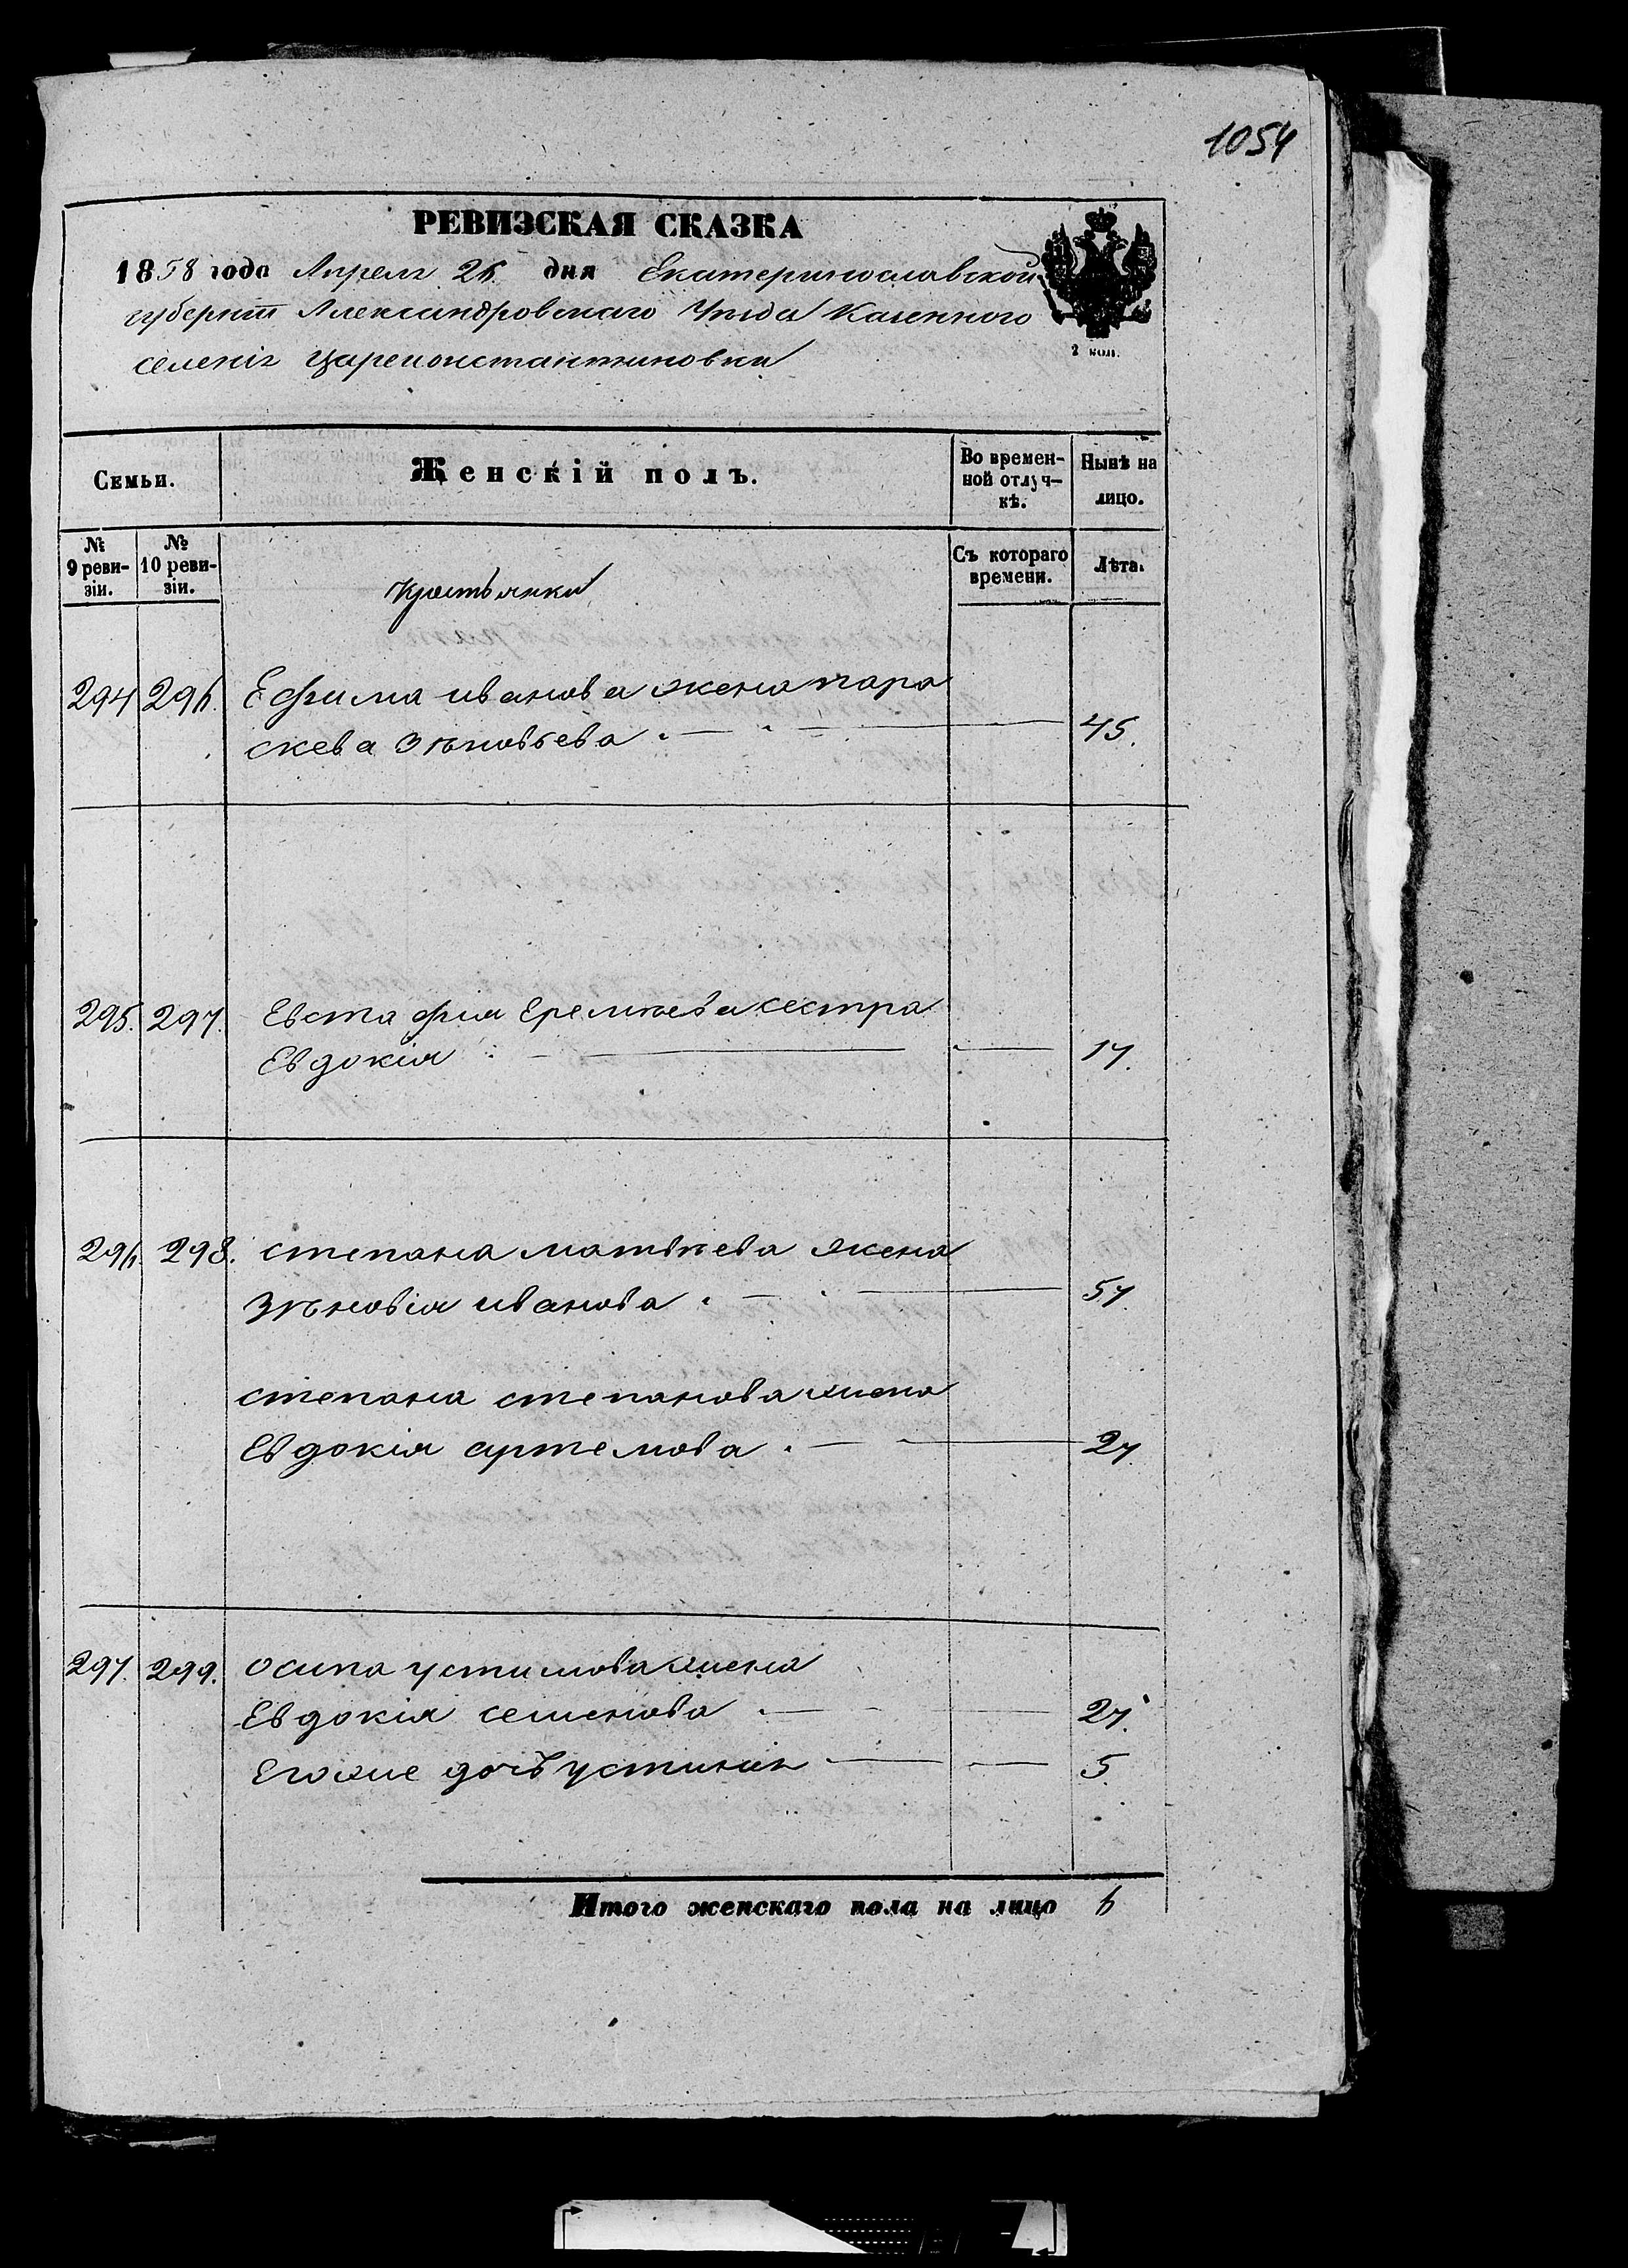 1054
РЕВИЗСКАЯ СКАЗКА
1858 года Апреля 26 дня Екатеринославской
губерніи Александровскаго Уѣзда Казенного
селенія Цареконстантиновки
2 коп.
Семьи.
Женскій полъ.
Во времен-
ной отлуч-
кѣ.
Нынѣ на
лицо.
№ 9 реви-
зіи.
№ 10 реви-
зіи.
Съ котораго
времени.
Лѣта.
Крестьянки
294 296. Ефима иванова жена пара
скева Зѣновьева 45.
295. 297. Евстафия Еремѣева сестра
Евдокия 17.
296. 298. степана матвѣева жена
Зѣновия иванова 57.
степана степанова жена
Евдокия артемова 27
297. 299. осипа устимова жена
Евдокия семенова 27.
Егоже дочь устиния 5.
Итого женскаго пола на лицо 6